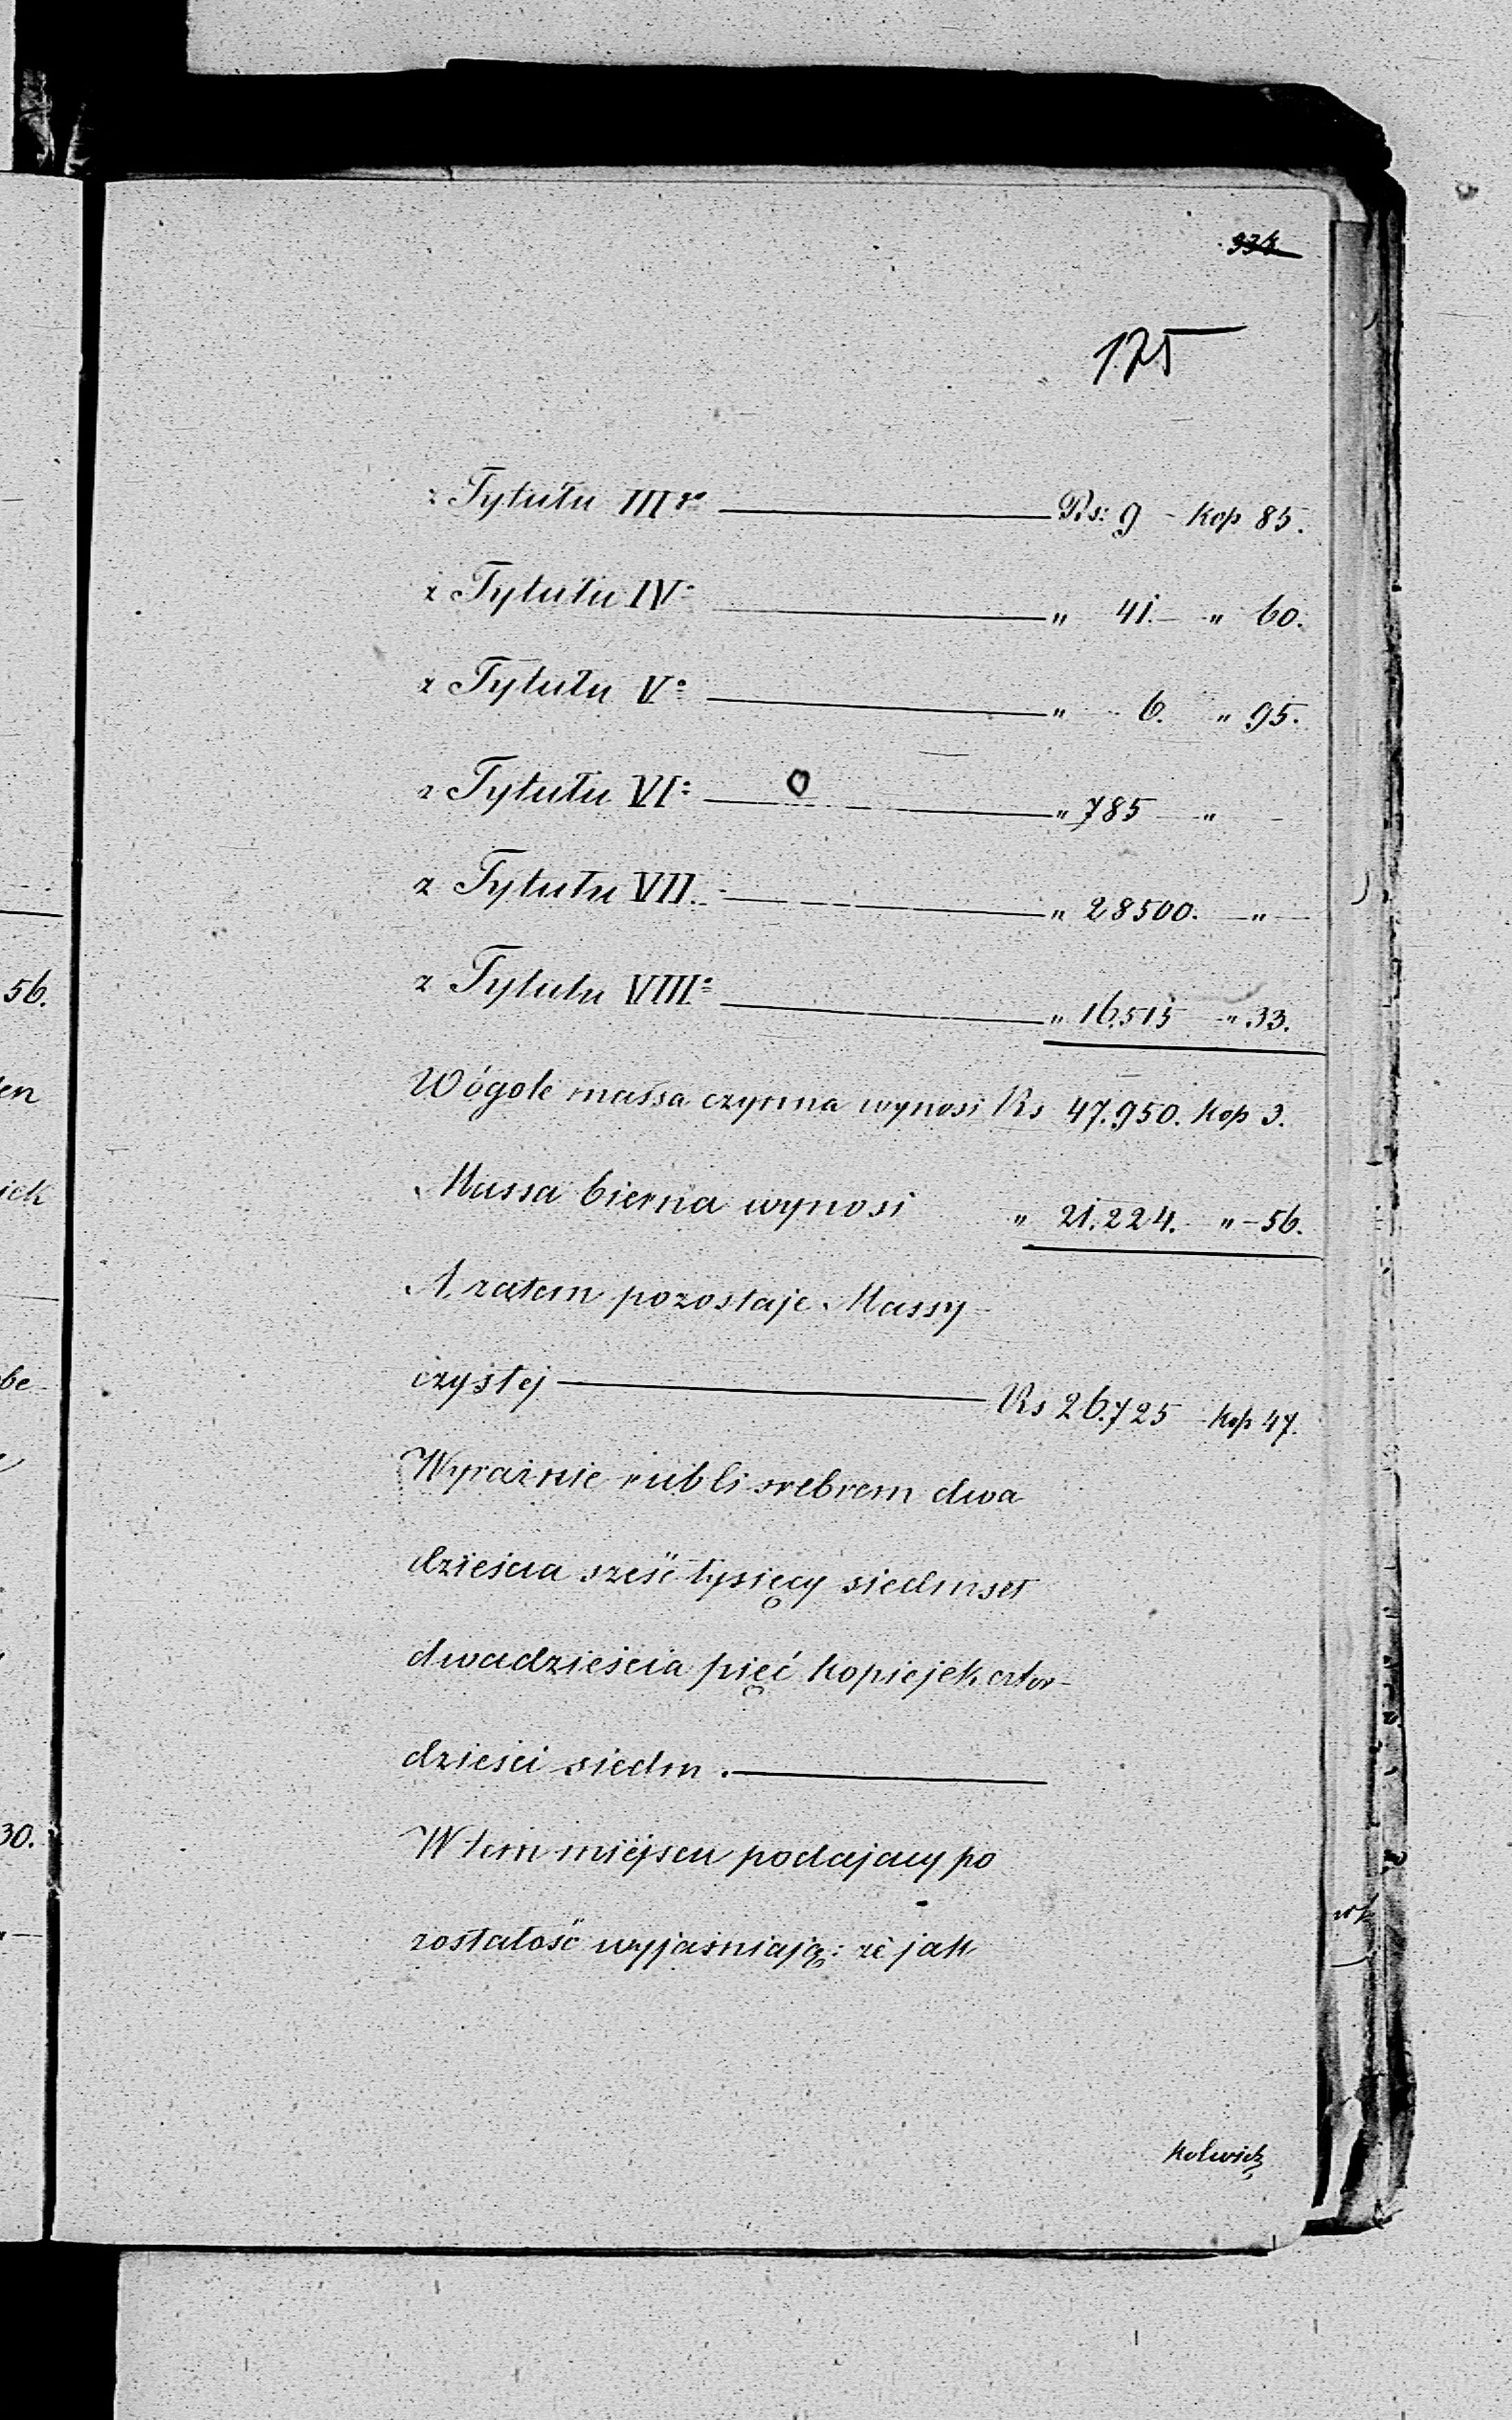 175
z Tytułu IIIo Rs: 9 - Kop 85.
z Tytułu IVo " 41. - " 60.
z Tytułu Vo " 6. " 95.
z Tytułu VIo " 785 - "
z Tytułu VII. " 28500. - " -
z Tytułu VIIIo " 16.515 " 33.
Wógole massa czynna wynosi Rs 47.950. Kop 3.
Massa bierna wynosi " 21.224. " - 56.
A zatem pozostaje Massy
czystej Rs 26.725 Kop 47.
Wyraźnie rubli srebrem dwa
dzieścia sześć tysięcy siedmset
dwadzieścia pięć kopiejek czter-
dzieści siedm.
W tem miejscu podający po
zostałość wyjaśniają: że jak
56.
en
iek
be
30.